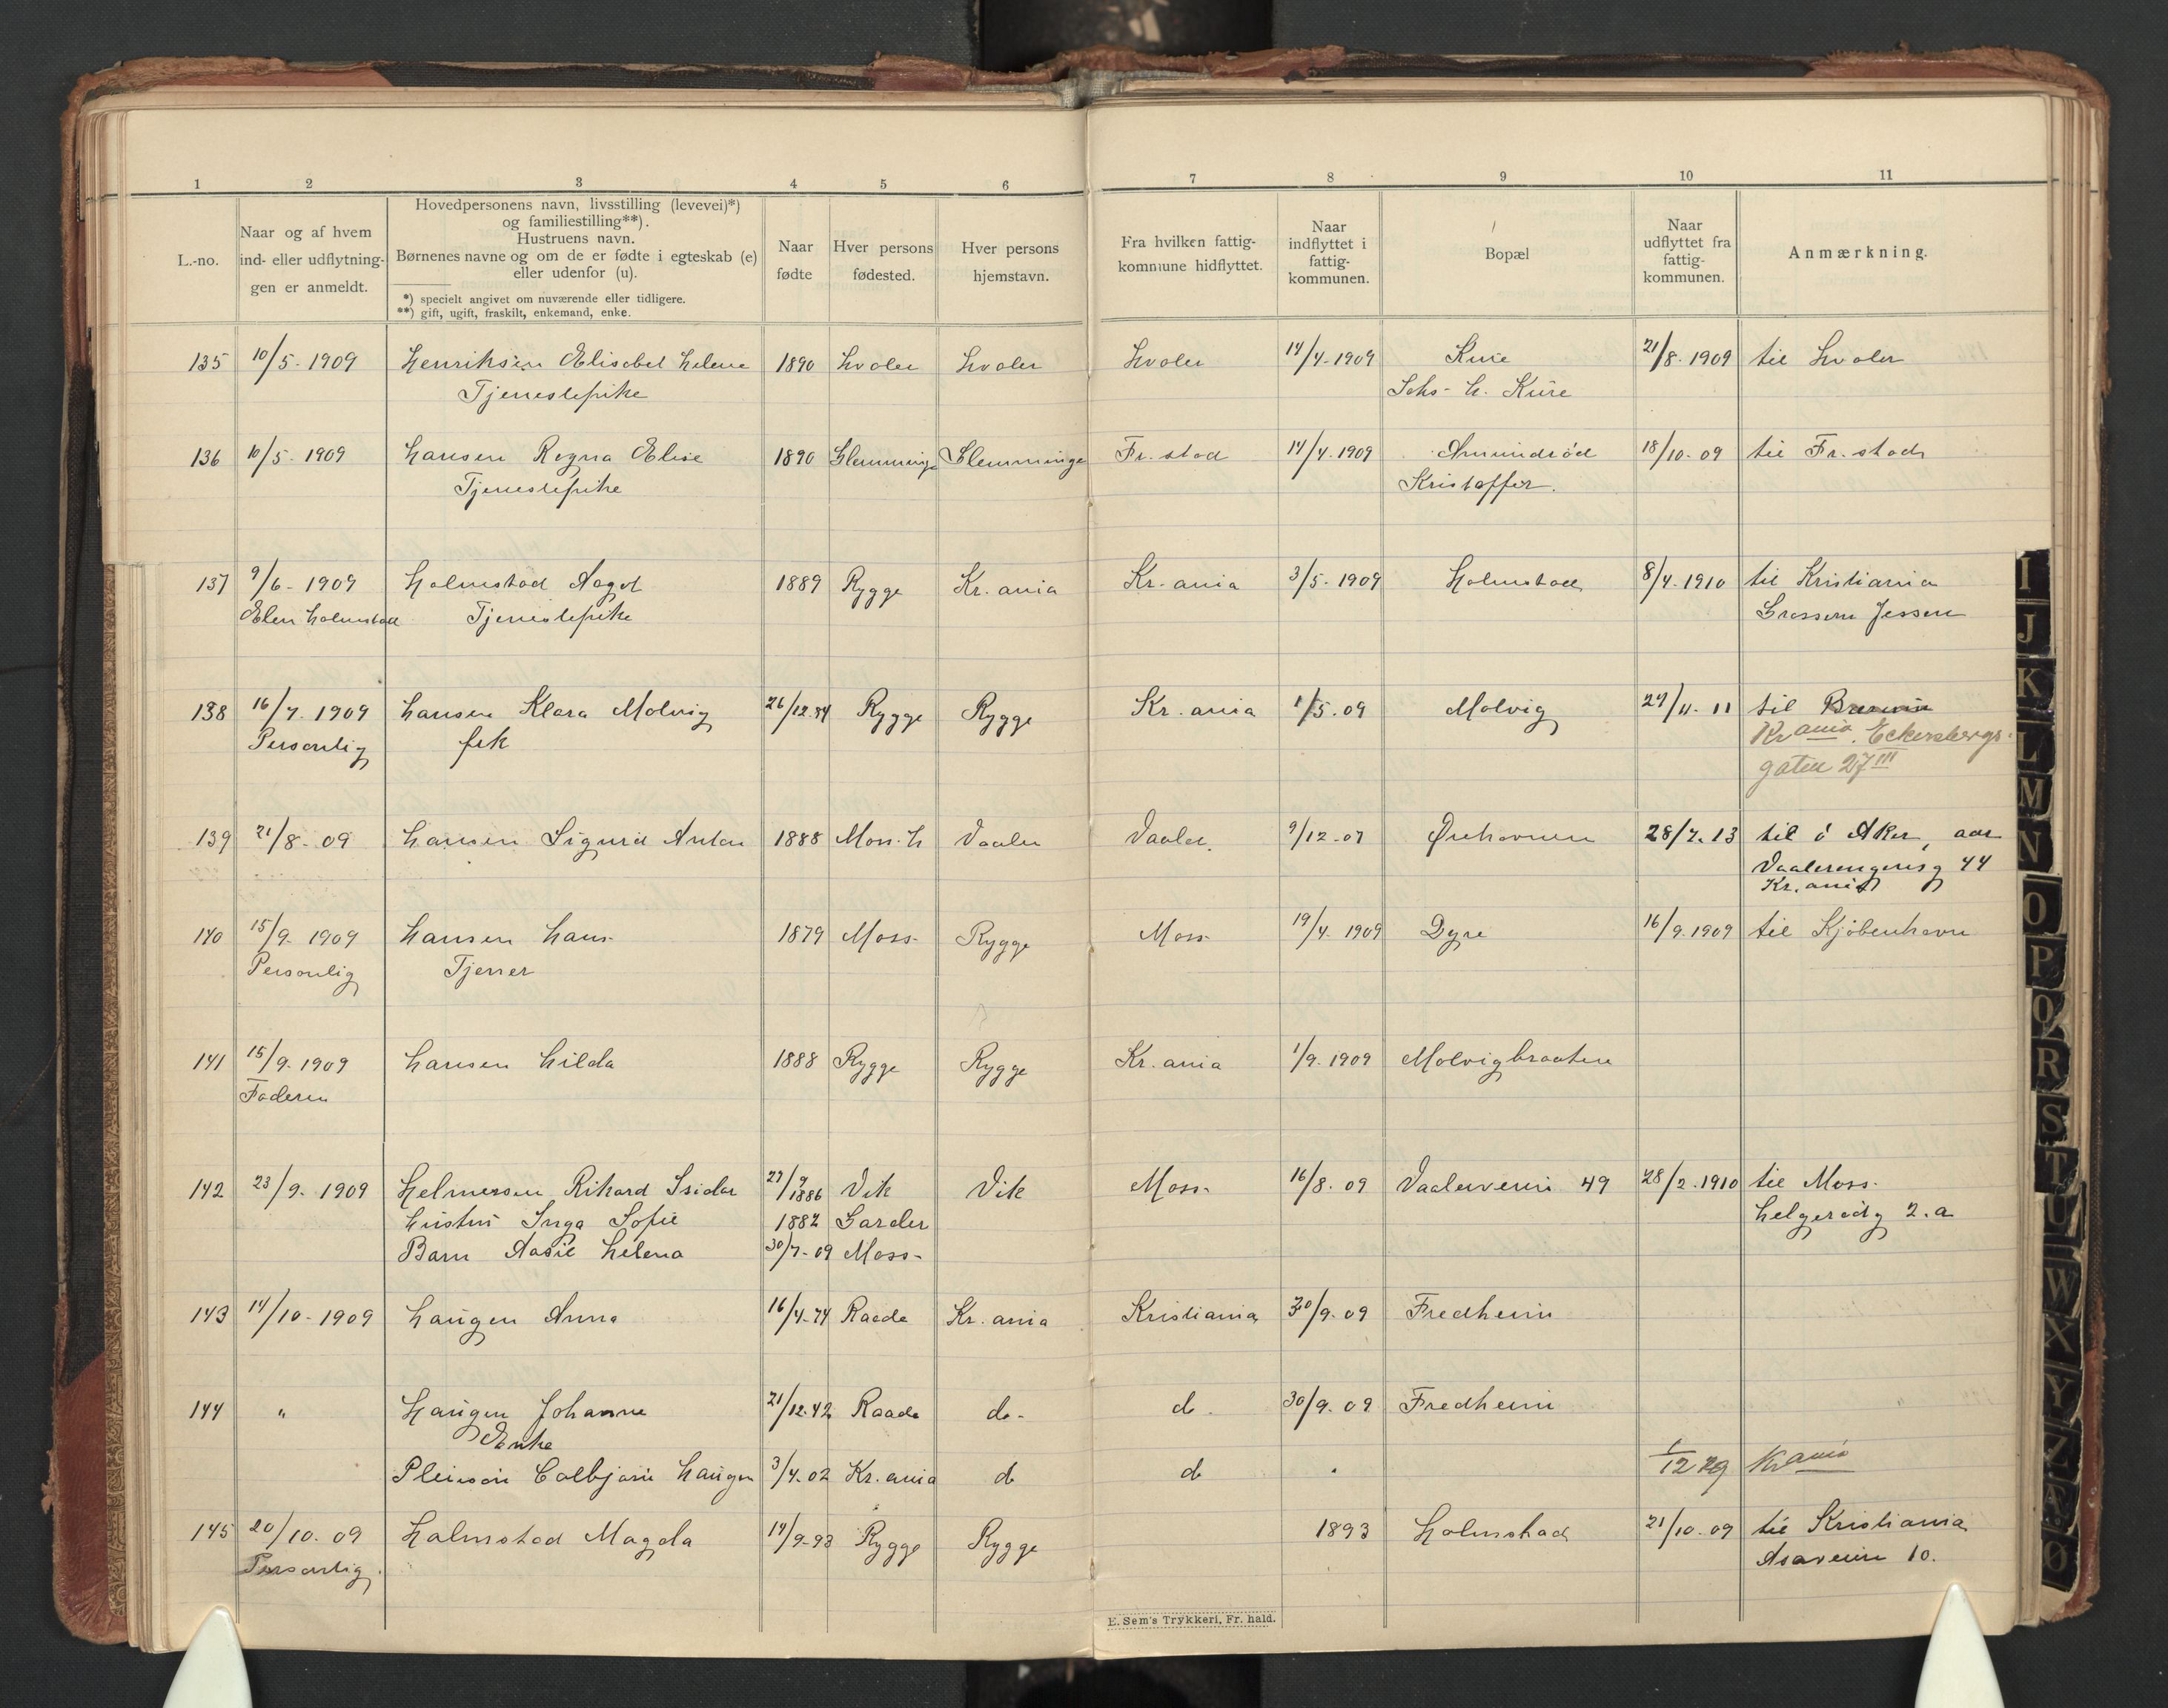 1 2 3 4 5 6 7 8 9 10 11
L.-no.
Naar og af hvem
ind- eller udflytnin-
gen er anmeldt.
Hovedpersonens navn, livsstilling (levevei)*)
og familiestilling**).
Hustruens navn.
Børnenes navne og om de er fødte i egteskab (e)
eller udenfor (u).
*) specielt angivet om nuværende eller tidligere.
**) gift, ugift, fraskilt, enkemand, enke.
Naar
fødte
Hver persons
fødested.
Hver persons
hjemstavn.
Fra hvilken fattig-
kommune hidflyttet.
Naar
indflyttet i
fattig-
kommunen.
Bopæl
Naar
udflyttet fra
fattig-
kommunen.
Anmærkning.
135 10/5-1909 Henriksen Elisabet Helene 1890 Hvaler Hvaler Hvaler 14/4-1909 Kure 21/8-1909 til Hvaler
Tjenestepike Johs. H. Kure
136 10/5-1909 Hansen Ragna Elise 1890 Glemminge Glemminge Fr.stad 14/4-1909 Amundrød 18/10-09 til Fr.stad
Tjenestepike Kristoffer.
137 9/6-1909 Holmstad Aagot 1889 Rygge Kr.ania Kr.ania 3/5-1909 Holmstad 8/4-1910 til Kristiania
Elen Holmstad Tjenestepike Grosserer Jessen
138 16/7.1909 Hansen Klara Molvig 26/12.84 Rygge Rygge Kr.ania 1/5.09 Molvig 29/11-11 til
Personlig pik Krania. Eckersbergs-
gaten 27 III
139 21/8-09 Hansen Sigurd Anton 1888 Moss.h Vaaler Vaaler. 9/12-07 Ørehavnen 28/7.13 til Ø Aker, aar
Vaalerengensg 44
Kr.ania
140 15/9-1909 Hansen Hans- 1879 Moss- Rygge Moss- 19/4-1909 Dyre 16/9.1909 til Kjøbenhavn
Personlig Tjener
141 15/9-1909 Hansen Hilda 1888 Rygge Rygge Kr.ania 1/9-1909 Molvigbraaten
Faderen
142 23/9.1909 Helmersen Rikard Isidor 27/9 1886 Vik Vik Moss- 16/8.09 Vaalerveien 49 28/2.1910 til Moss-
Hustru Inga Sofie 1882 Garder Helgerødg 2.a
Barn Aasil Helena 30/7-09 Moss-
143 14/10-1909 Haugen Anna 16/4-74 Raade Kr.ania Kristiania 30/9-09 Fredheim
144 " Haugen Johanne 21/12.42 Raade do- do- 30/9-09 Fredheim
Enke
Pleiesøn Colbjørn Haugen 3/4.02 Kr.ania do do . 1/12 29 Krania
145 20/10.09 Holmstad Magda 14/9-93 Rygge Rygge 1893 Holmstad 21/10-09 til Kristiania
Personlig. Asaveien 10.
E. Sem's Trykkeri, Fr. hald.
I
J
K
L
M
N
O
P
Q
R
S
T
U
W
X
Y
Z
Æ
Ø